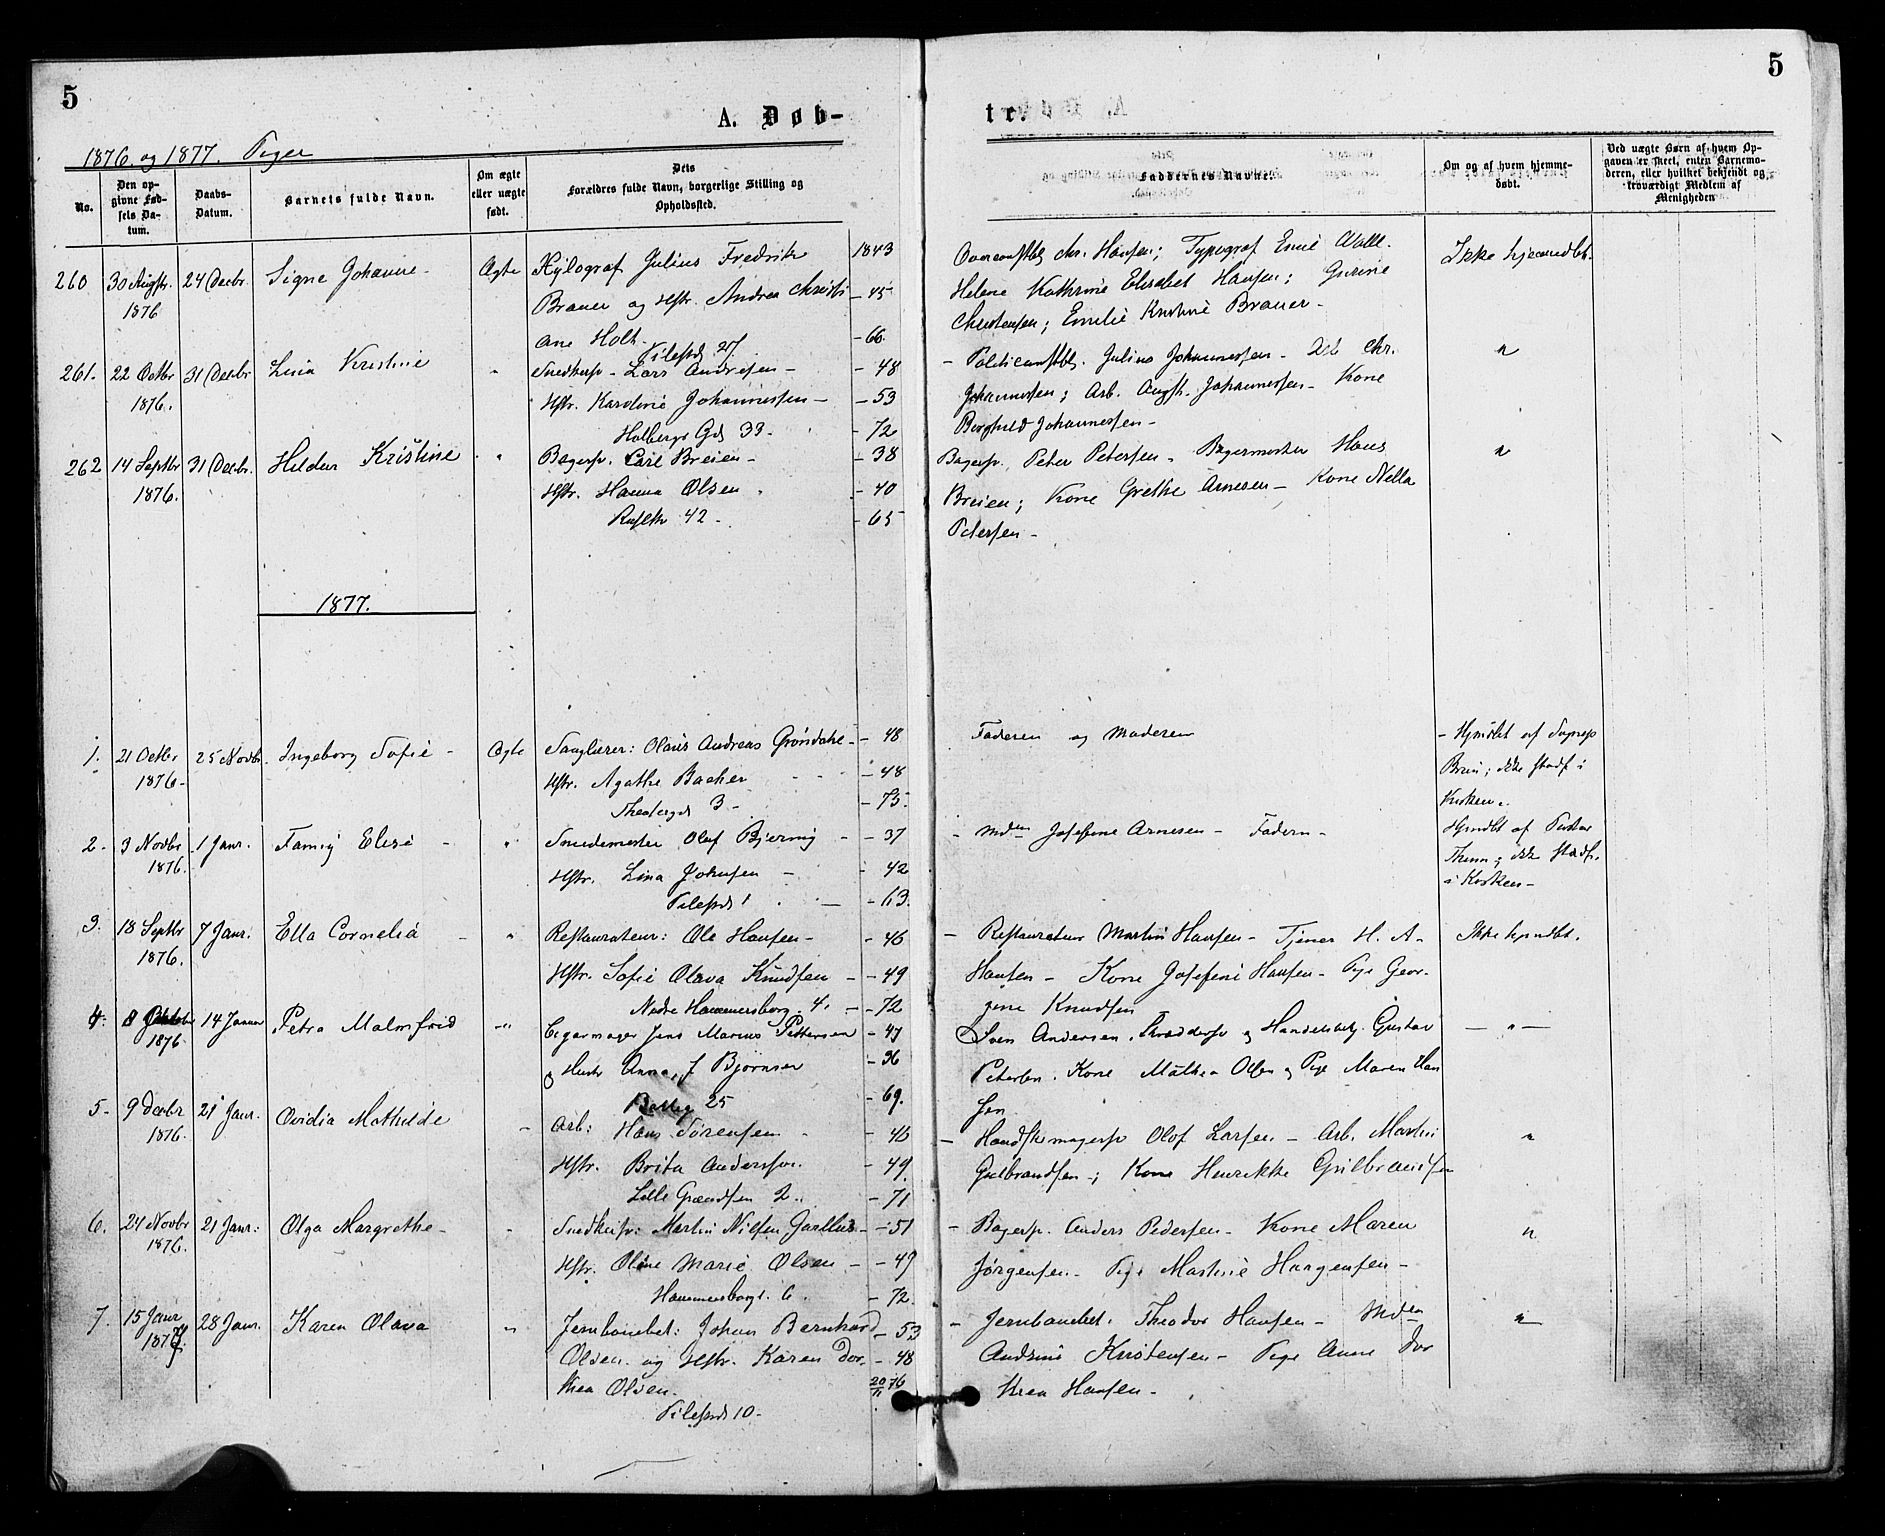 5
5
A. Døb-
te.
1876 og 1877. Piger
No.
Den op-
givne Fød-
sels Da-
tum.
Daabs-
Datum.
Barnets fulde Navn.
Om ægte
eller uægte
født.
Dets
Forældres fulde Navn, borgerlige Stilling og
Opholdssted.
Faddernes Navne.
Om og af hvem hjemme-
døbt.
Ved uægte Børn af hvem Op-
gaven er skeet, enten Barnemo-
deren, eller hvilket bekjendt og
troværdigt Medlem af
Menigheden
260 30 Augtr. 24 Decbr. Signe Johanne Ægte Xylograf Julius Fredrik 1843 Chr. Hansen; Typograf Emil
1876 Brauer og Hstr. Andrea Christi - 45 Helene Kathrine Elisabet Hansen; Gurine
ane Holt - 66. Christensen; Emilie Kristine Brauer - Ikke hjemmedbt.
Pilestrd 27
261. 22 Octbr 31 Decbr Lina Kristine " Snedkersv - Lars Andresen - - 48 - Julius Johannesen - Chr. "
1876. Hstr. Karoline Johannessen - - 53 Johannessen; Arb. Augst. Johannessen - Kone
Holbergs Gd 39. - 72 Borghild Johannessen -
262 14 Septbr 31 Decbr. Hildur Kristine " Bagersv. Carl Breien - - 38 Bagersv. Peter Petersen - Bagermester Hans "
1876. Hstr. Hanna Olsen - 40 Breien; Kone Grethe Arnesen - Kone Nella
42 - - 65 Petersen -
1877.
1. 21 Octbr 25 Novbr. Ingeborg Sofie - Ægte Sanglærer: Olaus Andreas Grøndahl - - 48 Faderen og Moderen - Hjmdbt af Sognep
1876 - Hstr. Agathe Backer - 48 ; ikke stadf i
Theatergd 3 - - 75. Kirken.
2. 3 Novbr 1 Janr. Fanny Elise - " Smedemester Olaf Bjerring - - 37 - Mdm Josefine Arnesen - Faderen - Hjmdbt af
1876. Hstr. Lina Johnsen - - 42 ikke stadf.
Pilestrd 1 - - 63. i Kirken -
3. 18 Septbr 7 Janr. Ella Cornelia - " Restaurateur: Ole Hansen - - 46 - Restauratør Martin Hansen - Tjener H. A - Ikke hjmdbt.
1876. Hstr. Sofie Olava Knudsen - - 49 Hansen - Kone Josefine Hansen - Pige Geor-
Nedre Hammersborg 4. - - 72 gine Knudsen
4. 8 Oktobr 14 Januar Petra Malmfrid - " Cigarmager Jens Marius Pettersen - 47 Sven Andersen. Skræddersv og Handelsbetj. Gustav - " -
1876 og Hustr Anna J Bjørnsen - 36 Petersen. Kone Mathea Olsen og Pige Maren Han
25 - 69. sen
5. 9 Decbr 21 Janr. Ovidia Mathilde - Arb: Hans Sørensen - 46 - Handskemagersv Olof Larsen - Arb. Martin "
1876. Hstr. Brita Andersson. - 49. Gulbrandsen -; Kone Henrikke Gulbrandsen
Lille Grændsen 2. - 71
6. 24 Novbr 21 Janr: Olga Margrethe - " Snedkersv: Martin Nilsen - 51 - Bagersv. Anders Pedersen - Kone Maren "
1876. Hstr. Oline Marie Olsen - - 49 Jørgensen - Pige Martine Haagensen -
Hammersborg. 6. - 72.
7. 15 Janr 28 Janr. Karen Olava " Jernbanebet: Johan Bernhard - 53 - Jernbanebet. Theodor Hansen - Mdm "
1877. Olsen og Hstr. Karen Dor. - 48 Kristensen - Pige Anne Dor
thea Olsen. 20/11 76 thea Hansen -
Pilestrd 10 -